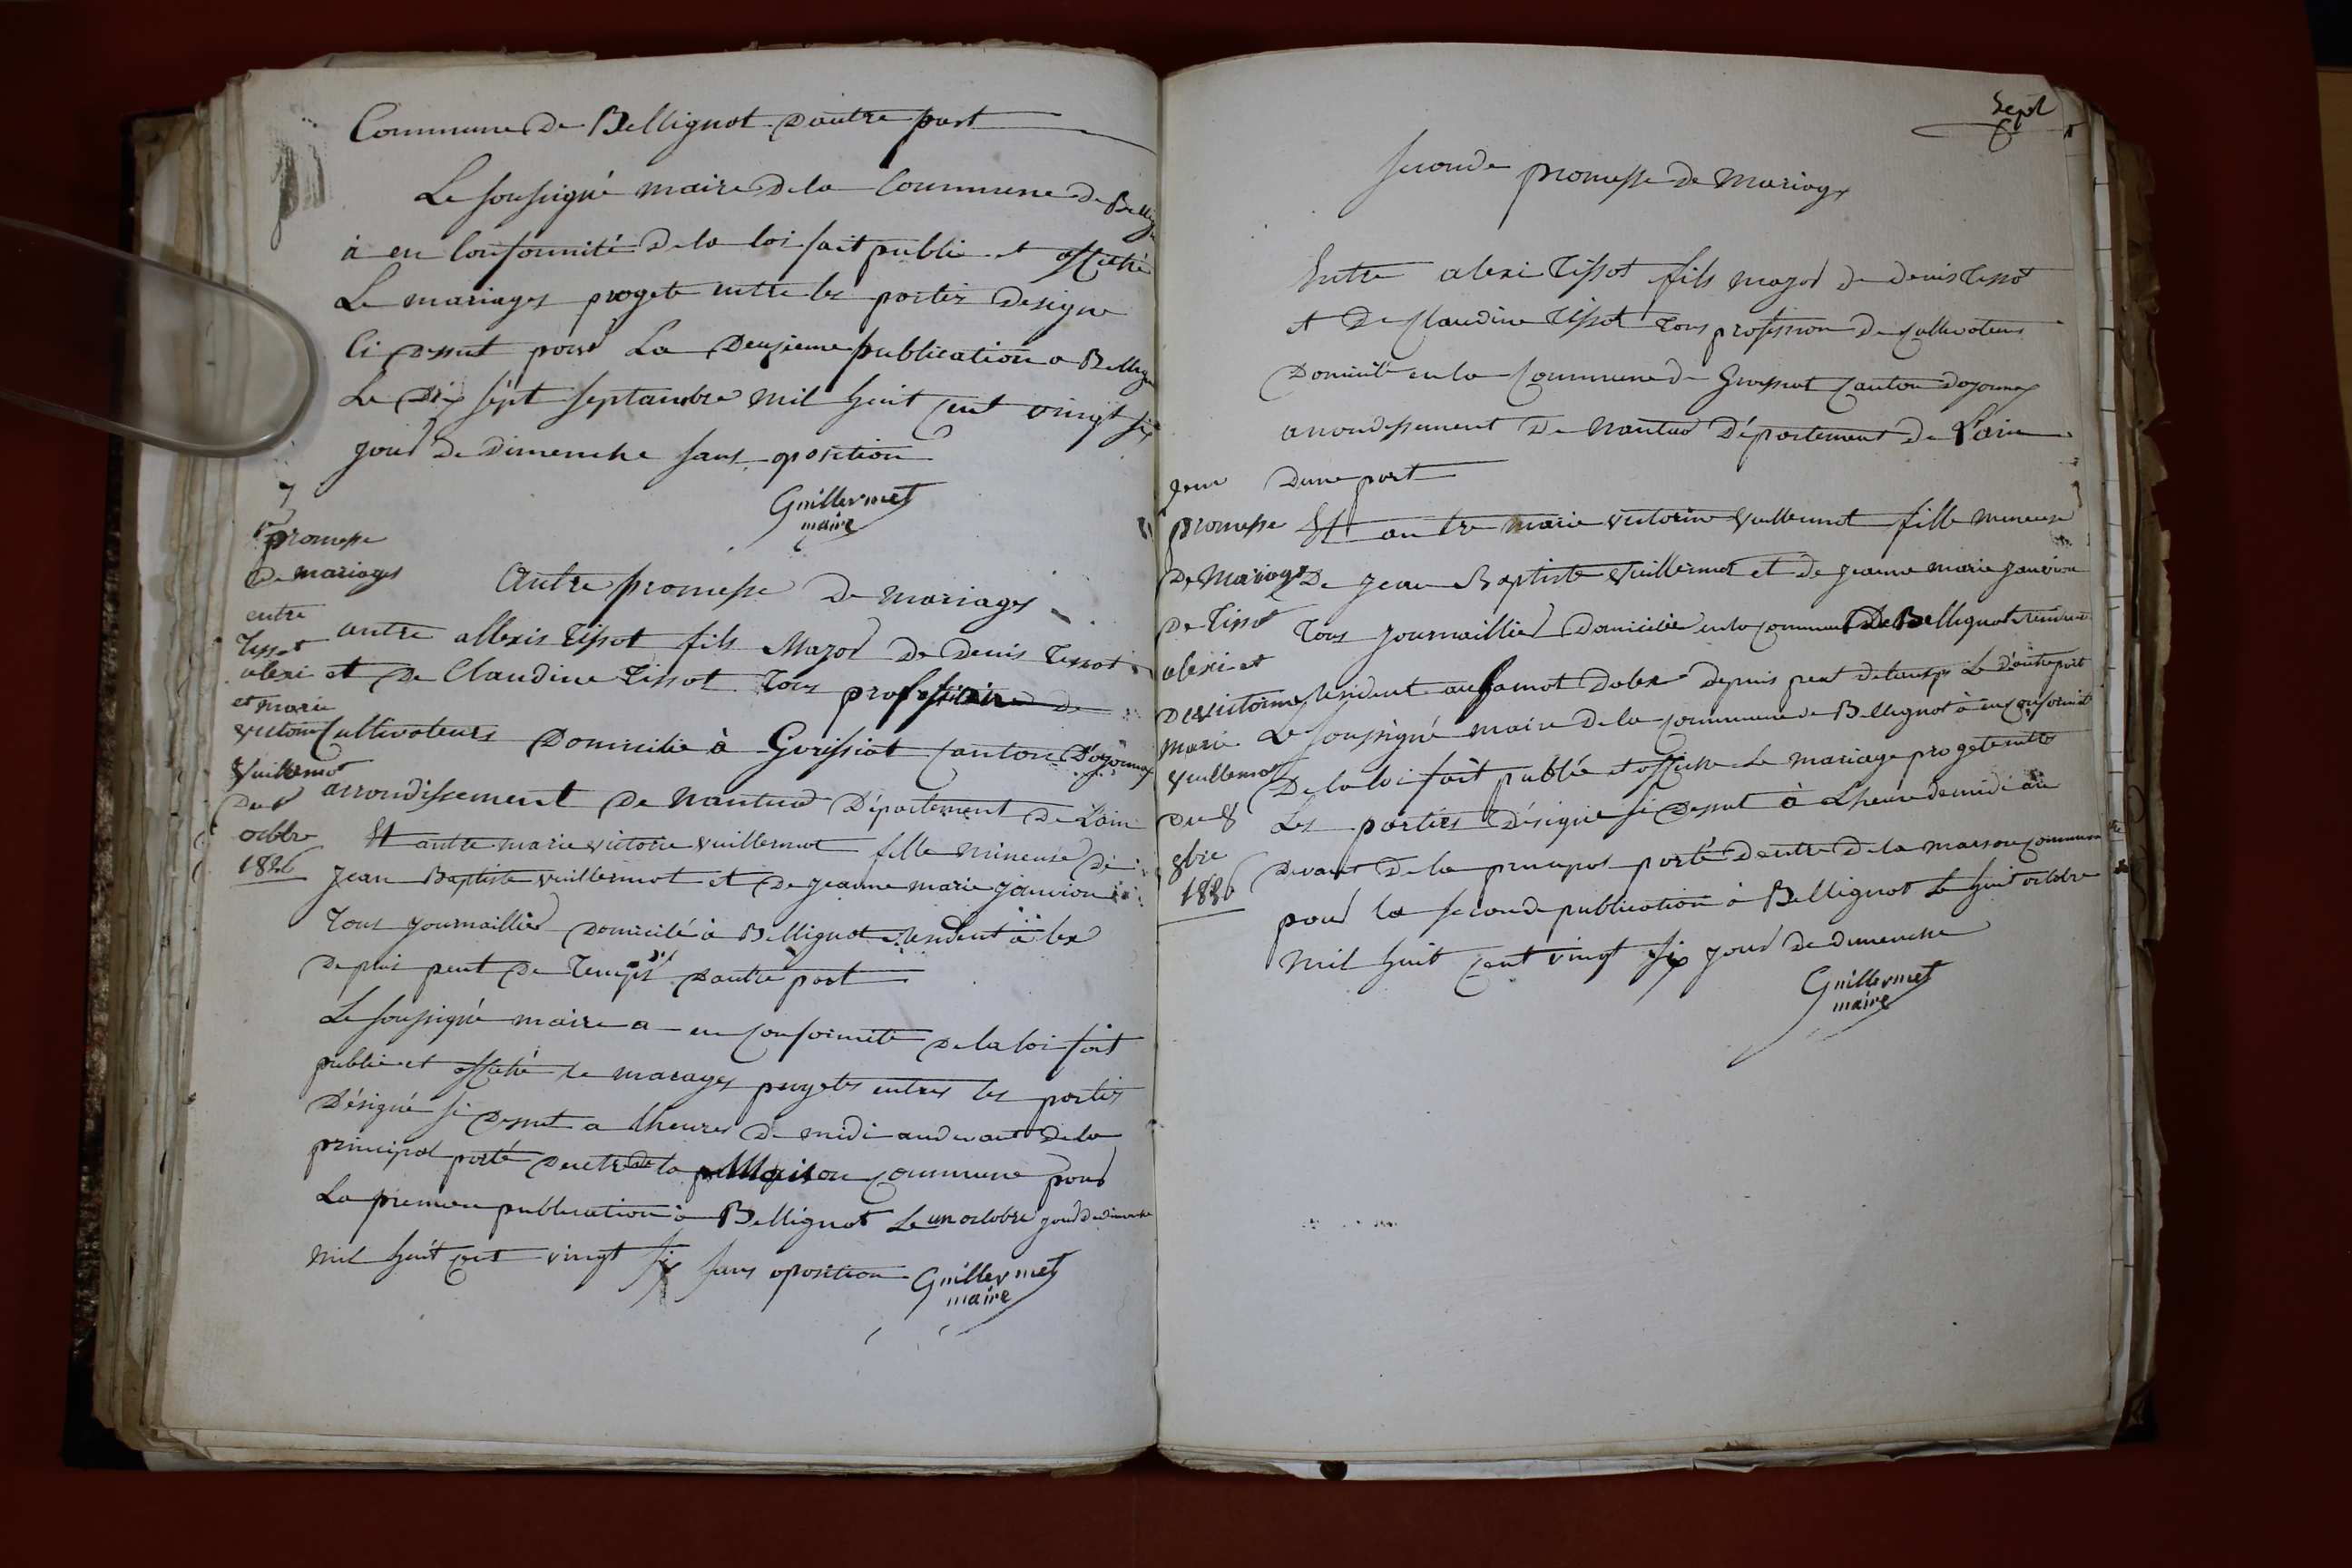 Commune de Bellignat d'autre part
Le soussigné maire de la Commune de Bellign
à en Conformité de la loi fait publié et affiché
Le mariages progeté entre les partis designe
Ci dessut pour La Deuzieme publication a Bellign
Le Dix sept septambre mil huit cent vingt six
jour de dimenche sans oposition
Guillermet
maire
7
1re promesse
de mariages
entre
Tissot
alexi
et marie
victoire
Vuillermot
Du 1
octbre
1826
Autre promesse de mariages
antre allexis Tissot fils Major De Denis Tissot
et De Claudine Tissot Tous profession de
Cultivateurs Domicilié à Groissiat canton D'oyonnax
arrondissement de Nantua Département De L'ain
Et antre marie victoire vuillermot fille mineuse De
Jean Baptiste vuillermot et De Jeanne marie janvion
Tous journaillier Domicilé à Bellignat Resident à lex
Depuis peut De Temps D'autre part
Le soussigné maire a en conformité de la loi fait
publié et affiché le marages progetes entres les partis
Désigné si Dessut a lheures De midi audevant De la
principal porté D'entré de la Maison commune pour
La premiere publication à Bellignat Le un octobre jour De dimenche
mil huit cent vingt six sans oposition
Guillermet
maire
Sept
seconde promesse de Mariage
2eme
promesse
De Mariage
De Tissot
alexi et
De victoire
Marie
Vuillermot
Du 8
8bre
1826
Entre alexi Tissot fils major de denis Tissot
et De Claudine Tissot Tous profession De Cultivateurs
Domicilé en la Commune de Groissiat Canton doyonnax
arrondissement De Nantua Département De L'ain
D'une part
Et antre marie victorine Vuillermot fille mineuse
De Jean Baptiste Vuillermot et de jeanne marie janvion
Tous journaillier Domicilié en la commune De Bellignat
Resident au hamot Dalex depuis peut de temps Le D'autre part
Le soussigné maire de la commune de Bellignat à en conformité
De la loi fait publié et affiché Le mariage progeté entre
Les parties Désigné si Dessut à L'heure de midi au
Devant De la principal porté D'entré De la maison commune
pour la seconde publication à Bellignat Le huit octobre
mil huit cent vingt six jour De dimenche
Guillermet
maire